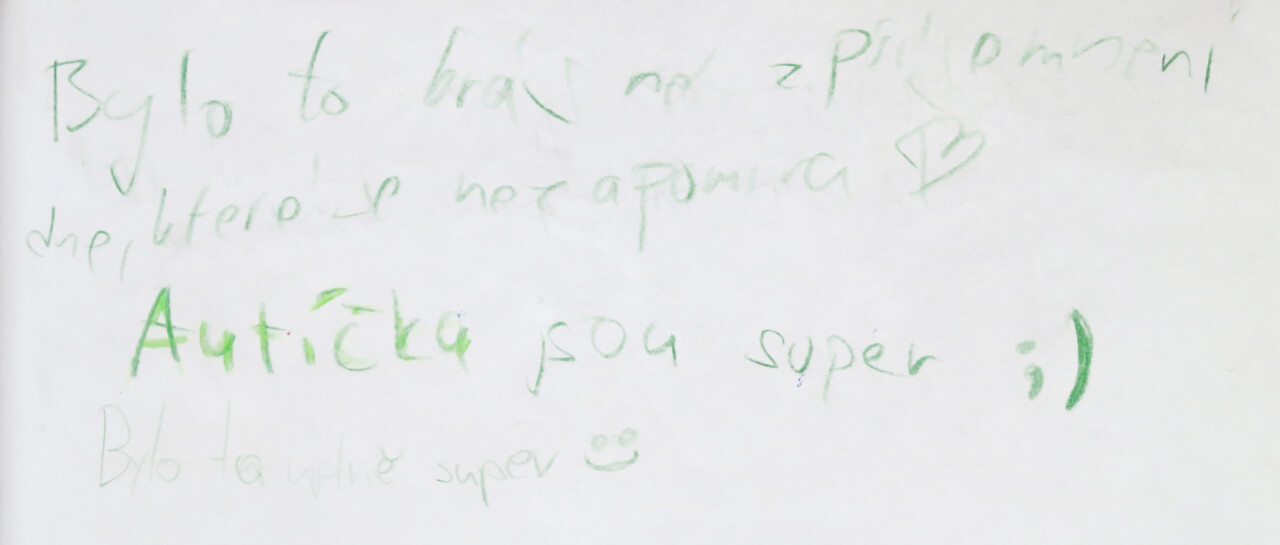 Bylo to krásné zpříjomnění
dne, které se nezapomíná
Autíčka jsou super ;)
Bylo to uplně super